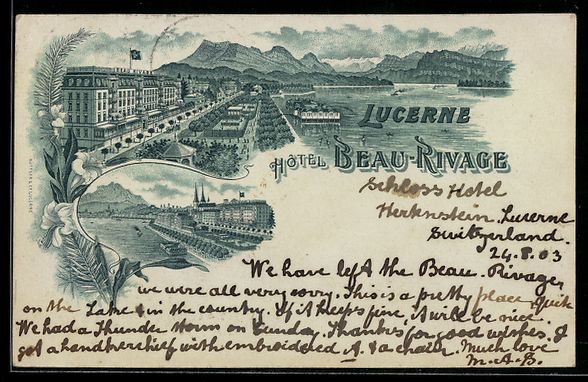 LUCERNE
HÔTEL BEAU-RIVAGE
Schloss Hotel
Hertenstein. Lucerne
Switzerland.
24.8.03
We have left the Beau-Rivage,
we were all very sorry. This is a pretty place quite
on the Lake & in the country. If it keeps fine, it will be nice.
We had a thunder storm on Sunday. Thanks for good wishes. I
got a handkerchief with embroidered A. & a chain. Much love
M.A.B.